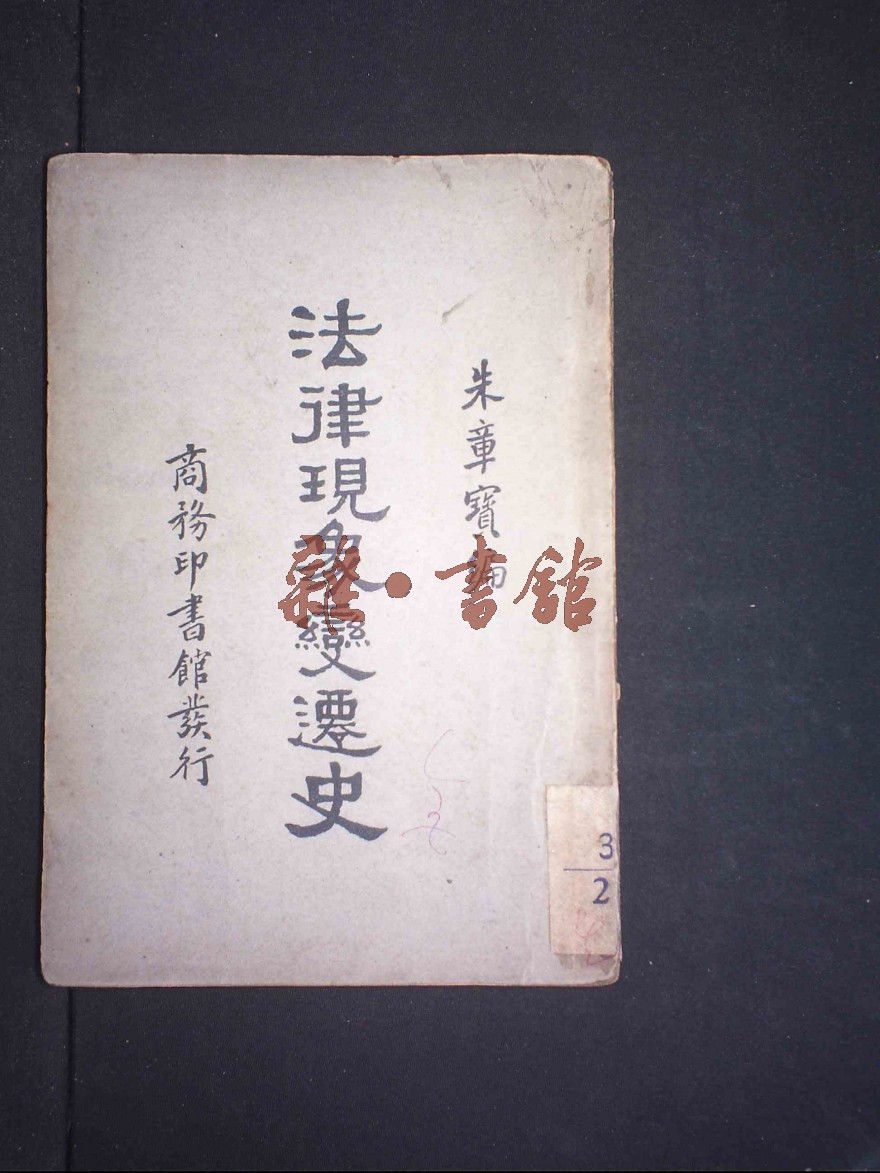 朱章寶編
法律現象變遷史
商務印書館發行
雜·書館
3
2